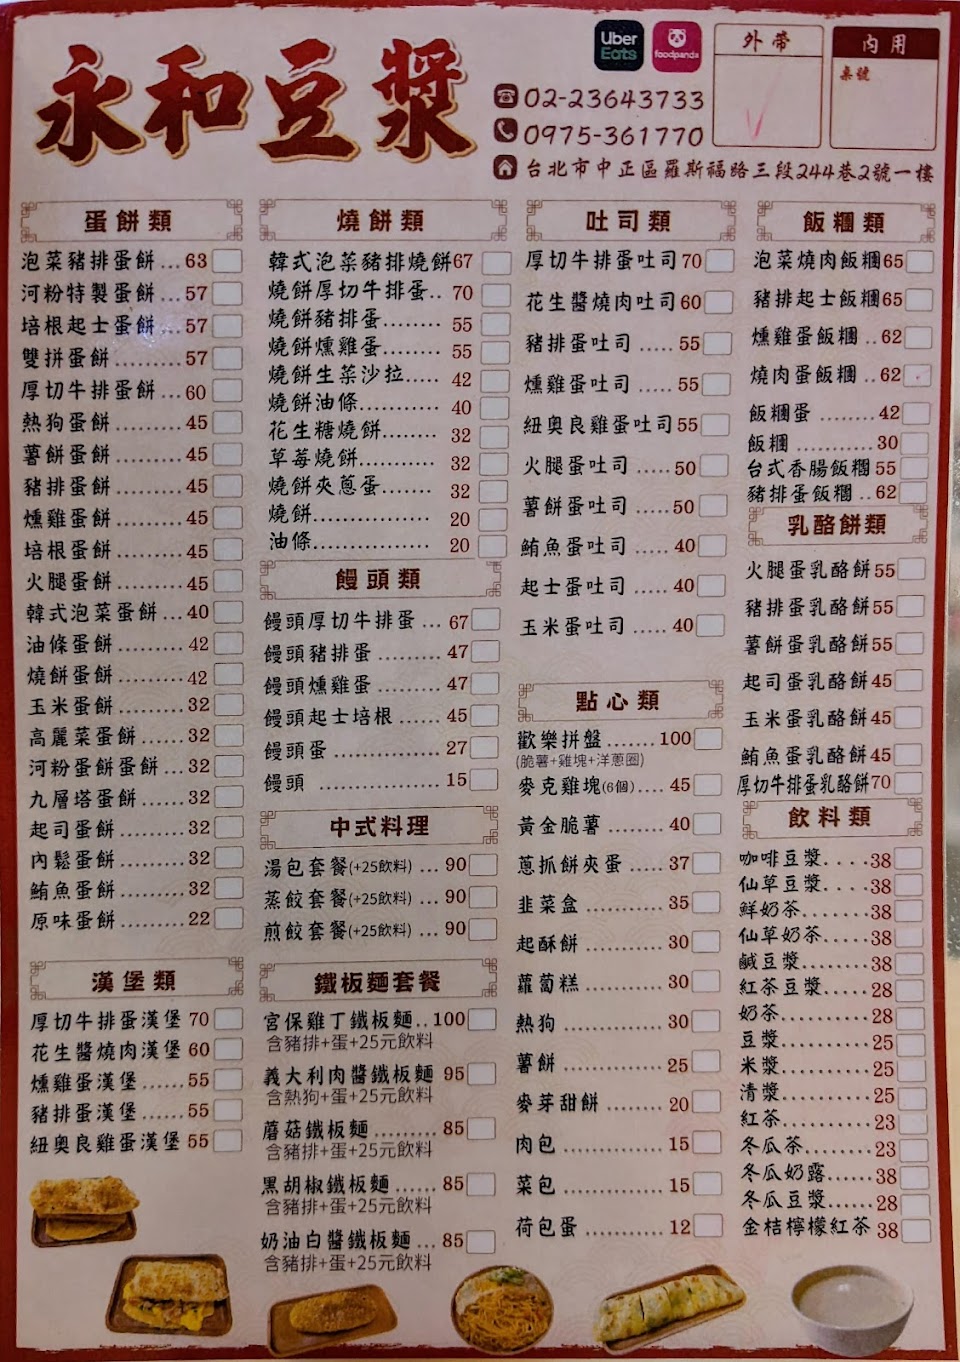 永和豆漿
Uber Eats
foodpanda
外帶
內用
桌號
02-23643733
0975-361770
台北市中正區羅斯福路三段244巷2號一樓
蛋餅類
泡菜豬排蛋餅...63
河粉特製蛋餅...57
培根起士蛋餅...57
雙拼蛋餅.........57
厚切牛排蛋餅...60
熱狗蛋餅........45
薯餅蛋餅........45
豬排蛋餅........45
燻雞蛋餅........45
培根蛋餅........45
火腿蛋餅........45
韓式泡菜蛋餅...40
油條蛋餅........42
燒餅蛋餅........42
玉米蛋餅........32
高麗菜蛋餅......32
河粉蛋餅蛋餅...32
九層塔蛋餅......32
起司蛋餅........32
肉鬆蛋餅........32
鮪魚蛋餅........32
原味蛋餅........22
漢堡類
厚切牛排蛋漢堡 70
花生醬燒肉漢堡 60
燻雞蛋漢堡......55
豬排蛋漢堡......55
紐奧良雞蛋漢堡 55
燒餅類
韓式泡菜豬排燒餅67
燒餅厚切牛排蛋.. 70
燒餅豬排蛋........ 55
燒餅燻雞蛋........ 55
燒餅生菜沙拉..... 42
燒餅油條........... 40
花生糖燒餅........ 32
草莓燒餅........... 32
燒餅夾蔥蛋....... 32
燒餅................ 20
油條................ 20
饅頭類
饅頭厚切牛排蛋 ... 67
饅頭豬排蛋 ......... 47
饅頭燻雞蛋 ......... 47
饅頭起士培根 ...... 45
饅頭蛋 ............... 27
饅頭 .................. 15
中式料理
湯包套餐(+25飲料) ... 90
蒸餃套餐(+25飲料) ... 90
煎餃套餐(+25飲料) ... 90
鐵板麵套餐
宮保雞丁鐵板麵..100
含豬排+蛋+25元飲料
義大利肉醬鐵板麵 95
含熱狗+蛋+25元飲料
蘑菇鐵板麵 ......... 85
含豬排+蛋+25元飲料
黑胡椒鐵板麵 ...... 85
含豬排+蛋+25元飲料
奶油白醬鐵板麵 ... 85
含豬排+蛋+25元飲料
吐司類
厚切牛排蛋吐司 70
花生醬燒肉吐司 60
豬排蛋吐司 ..... 55
燻雞蛋吐司 ..... 55
紐奧良雞蛋吐司 55
火腿蛋吐司 ..... 50
薯餅蛋吐司 ..... 50
鮪魚蛋吐司 ..... 40
起士蛋吐司 ..... 40
玉米蛋吐司 ..... 40
點心類
歡樂拼盤.......100
(脆薯+雞塊+洋蔥圈)
麥克雞塊(6個).... 45
黃金脆薯 ........ 40
蔥抓餅夾蛋 ..... 37
韭菜盒 ........... 35
起酥餅 ........... 30
蘿蔔糕 ........... 30
熱狗 .............. 30
薯餅 .............. 25
麥芽甜餅 ........ 20
肉包 .............. 15
菜包 .............. 15
荷包蛋 ........... 12
飯糰類
泡菜燒肉飯糰65
豬排起士飯糰65
燻雞蛋飯糰 .. 62
燒肉蛋飯糰 .. 62
飯糰蛋 ........ 42
飯糰 ........... 30
台式香腸飯糰 55
豬排蛋飯糰 .. 62
乳酪餅類
火腿蛋乳酪餅 55
豬排蛋乳酪餅 55
薯餅蛋乳酪餅 55
起司蛋乳酪餅 45
玉米蛋乳酪餅 45
鮪魚蛋乳酪餅 45
厚切牛排蛋乳酪餅70
飲料類
咖啡豆漿....38
仙草豆漿....38
鮮奶茶.......38
仙草奶茶.....38
鹹豆漿.......38
紅茶豆漿.....28
奶茶..........28
豆漿..........25
米漿..........25
清漿..........25
紅茶..........23
冬瓜茶.......23
冬瓜奶露.....38
冬瓜豆漿.....28
金桔檸檬紅茶 38